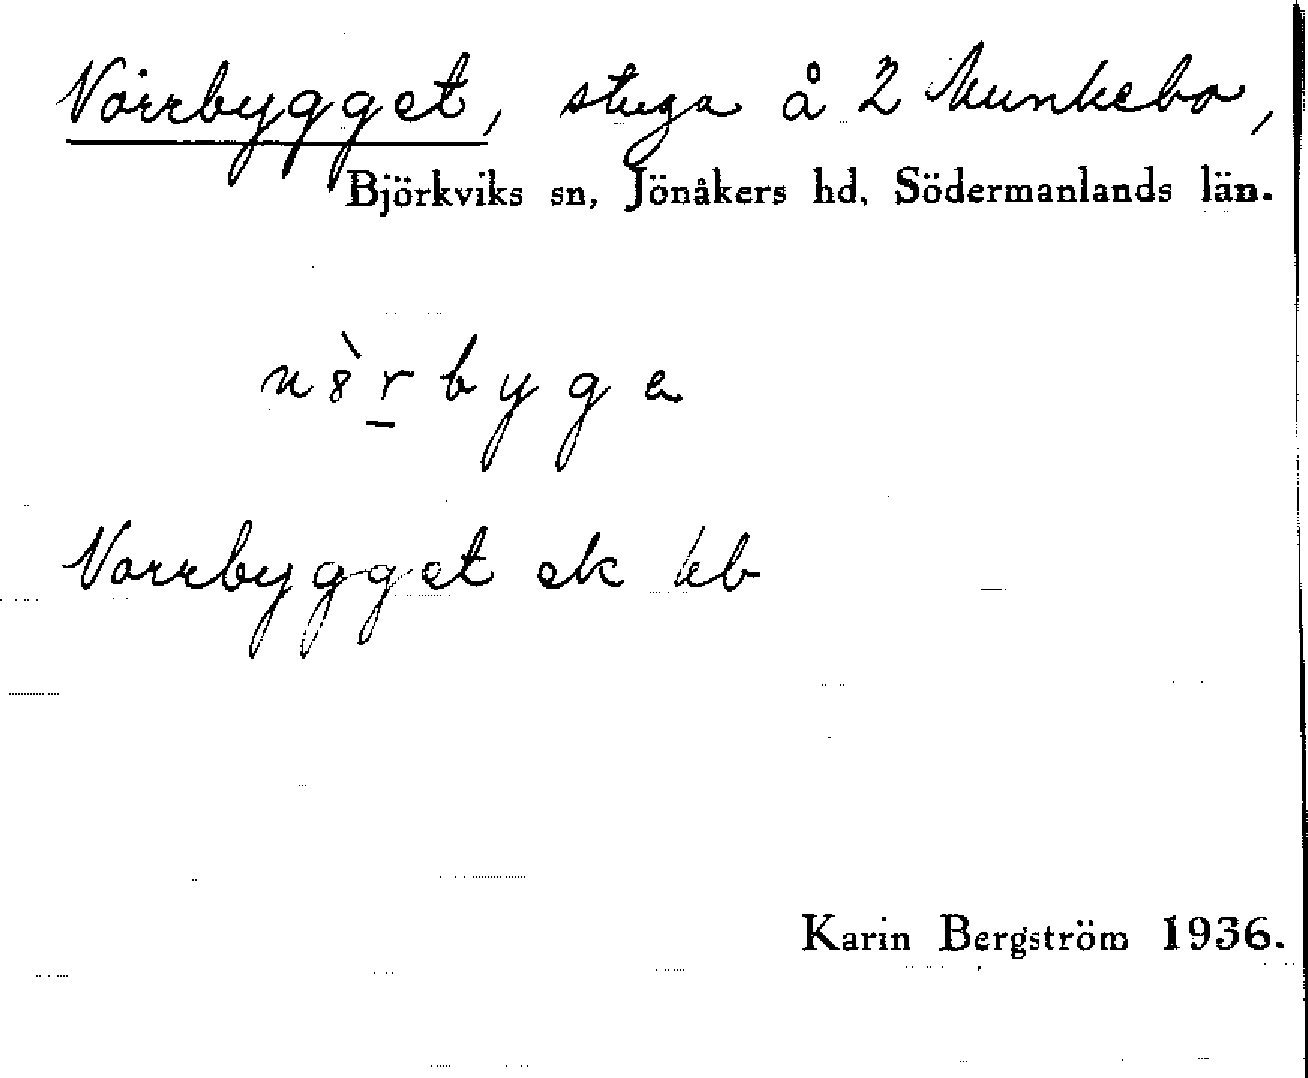 Norrbygget, stuga å 2 Munkebo,
Björkviks sn, Jönåkers hd, Södermanlands län.
n8̀r̲byge
Norrbygget ek kb
Karin Bergström 1936.